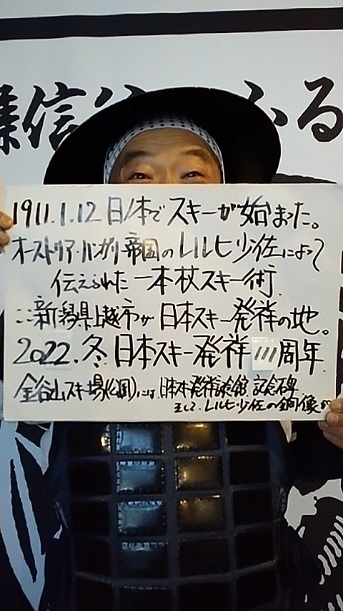 謙信公 ふる
1911.1.12 日本でスキーが始まった。
オーストリア・ハンガリー帝国のレルヒ少佐によって
伝えられた一本杖スキー術。
ここ新潟県上越市が日本スキー発祥の地。
2022.冬.日本スキー発祥111周年.
金谷山スキー場(公園)には、日本スキー発祥記念館、記念碑
そして、レルヒ少佐の銅像が